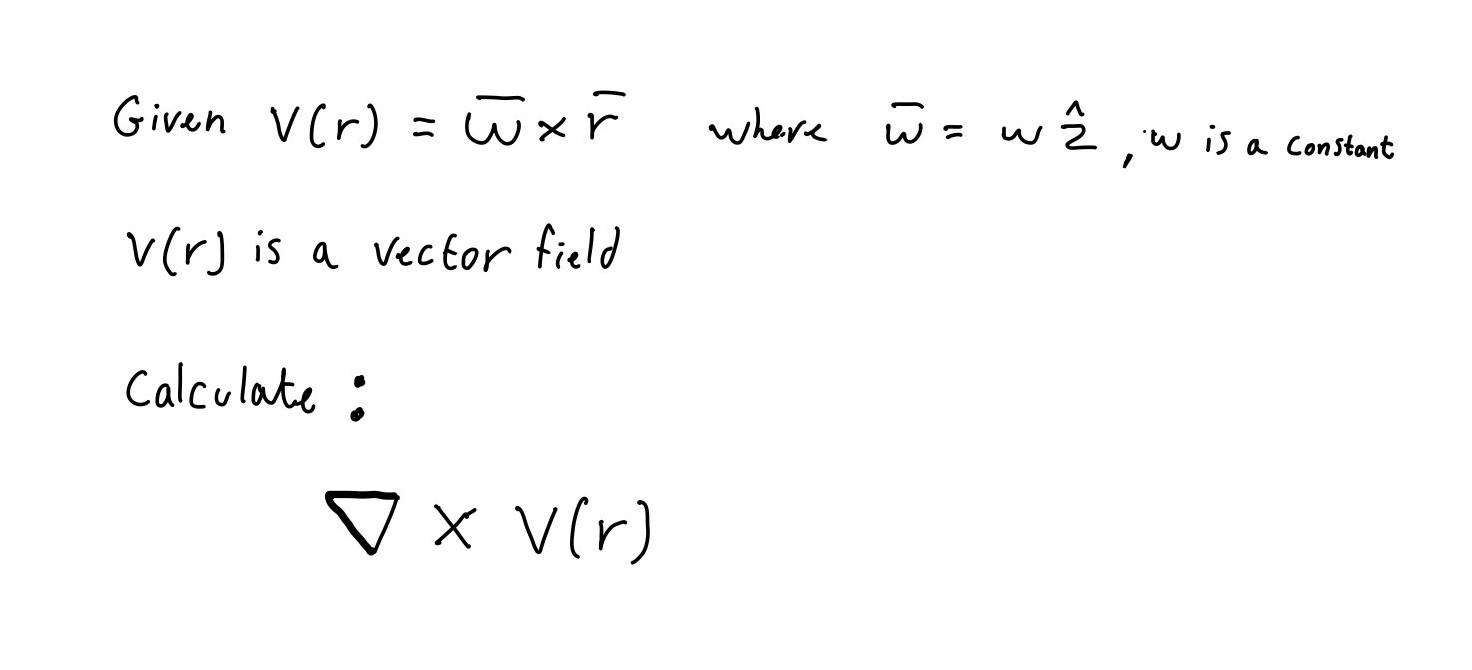 Given V(r) = ω̅ × r̅ where ω̅ = ω ẑ , ω is a constant
V(r) is a vector field
Calculate :
∇ × V(r)